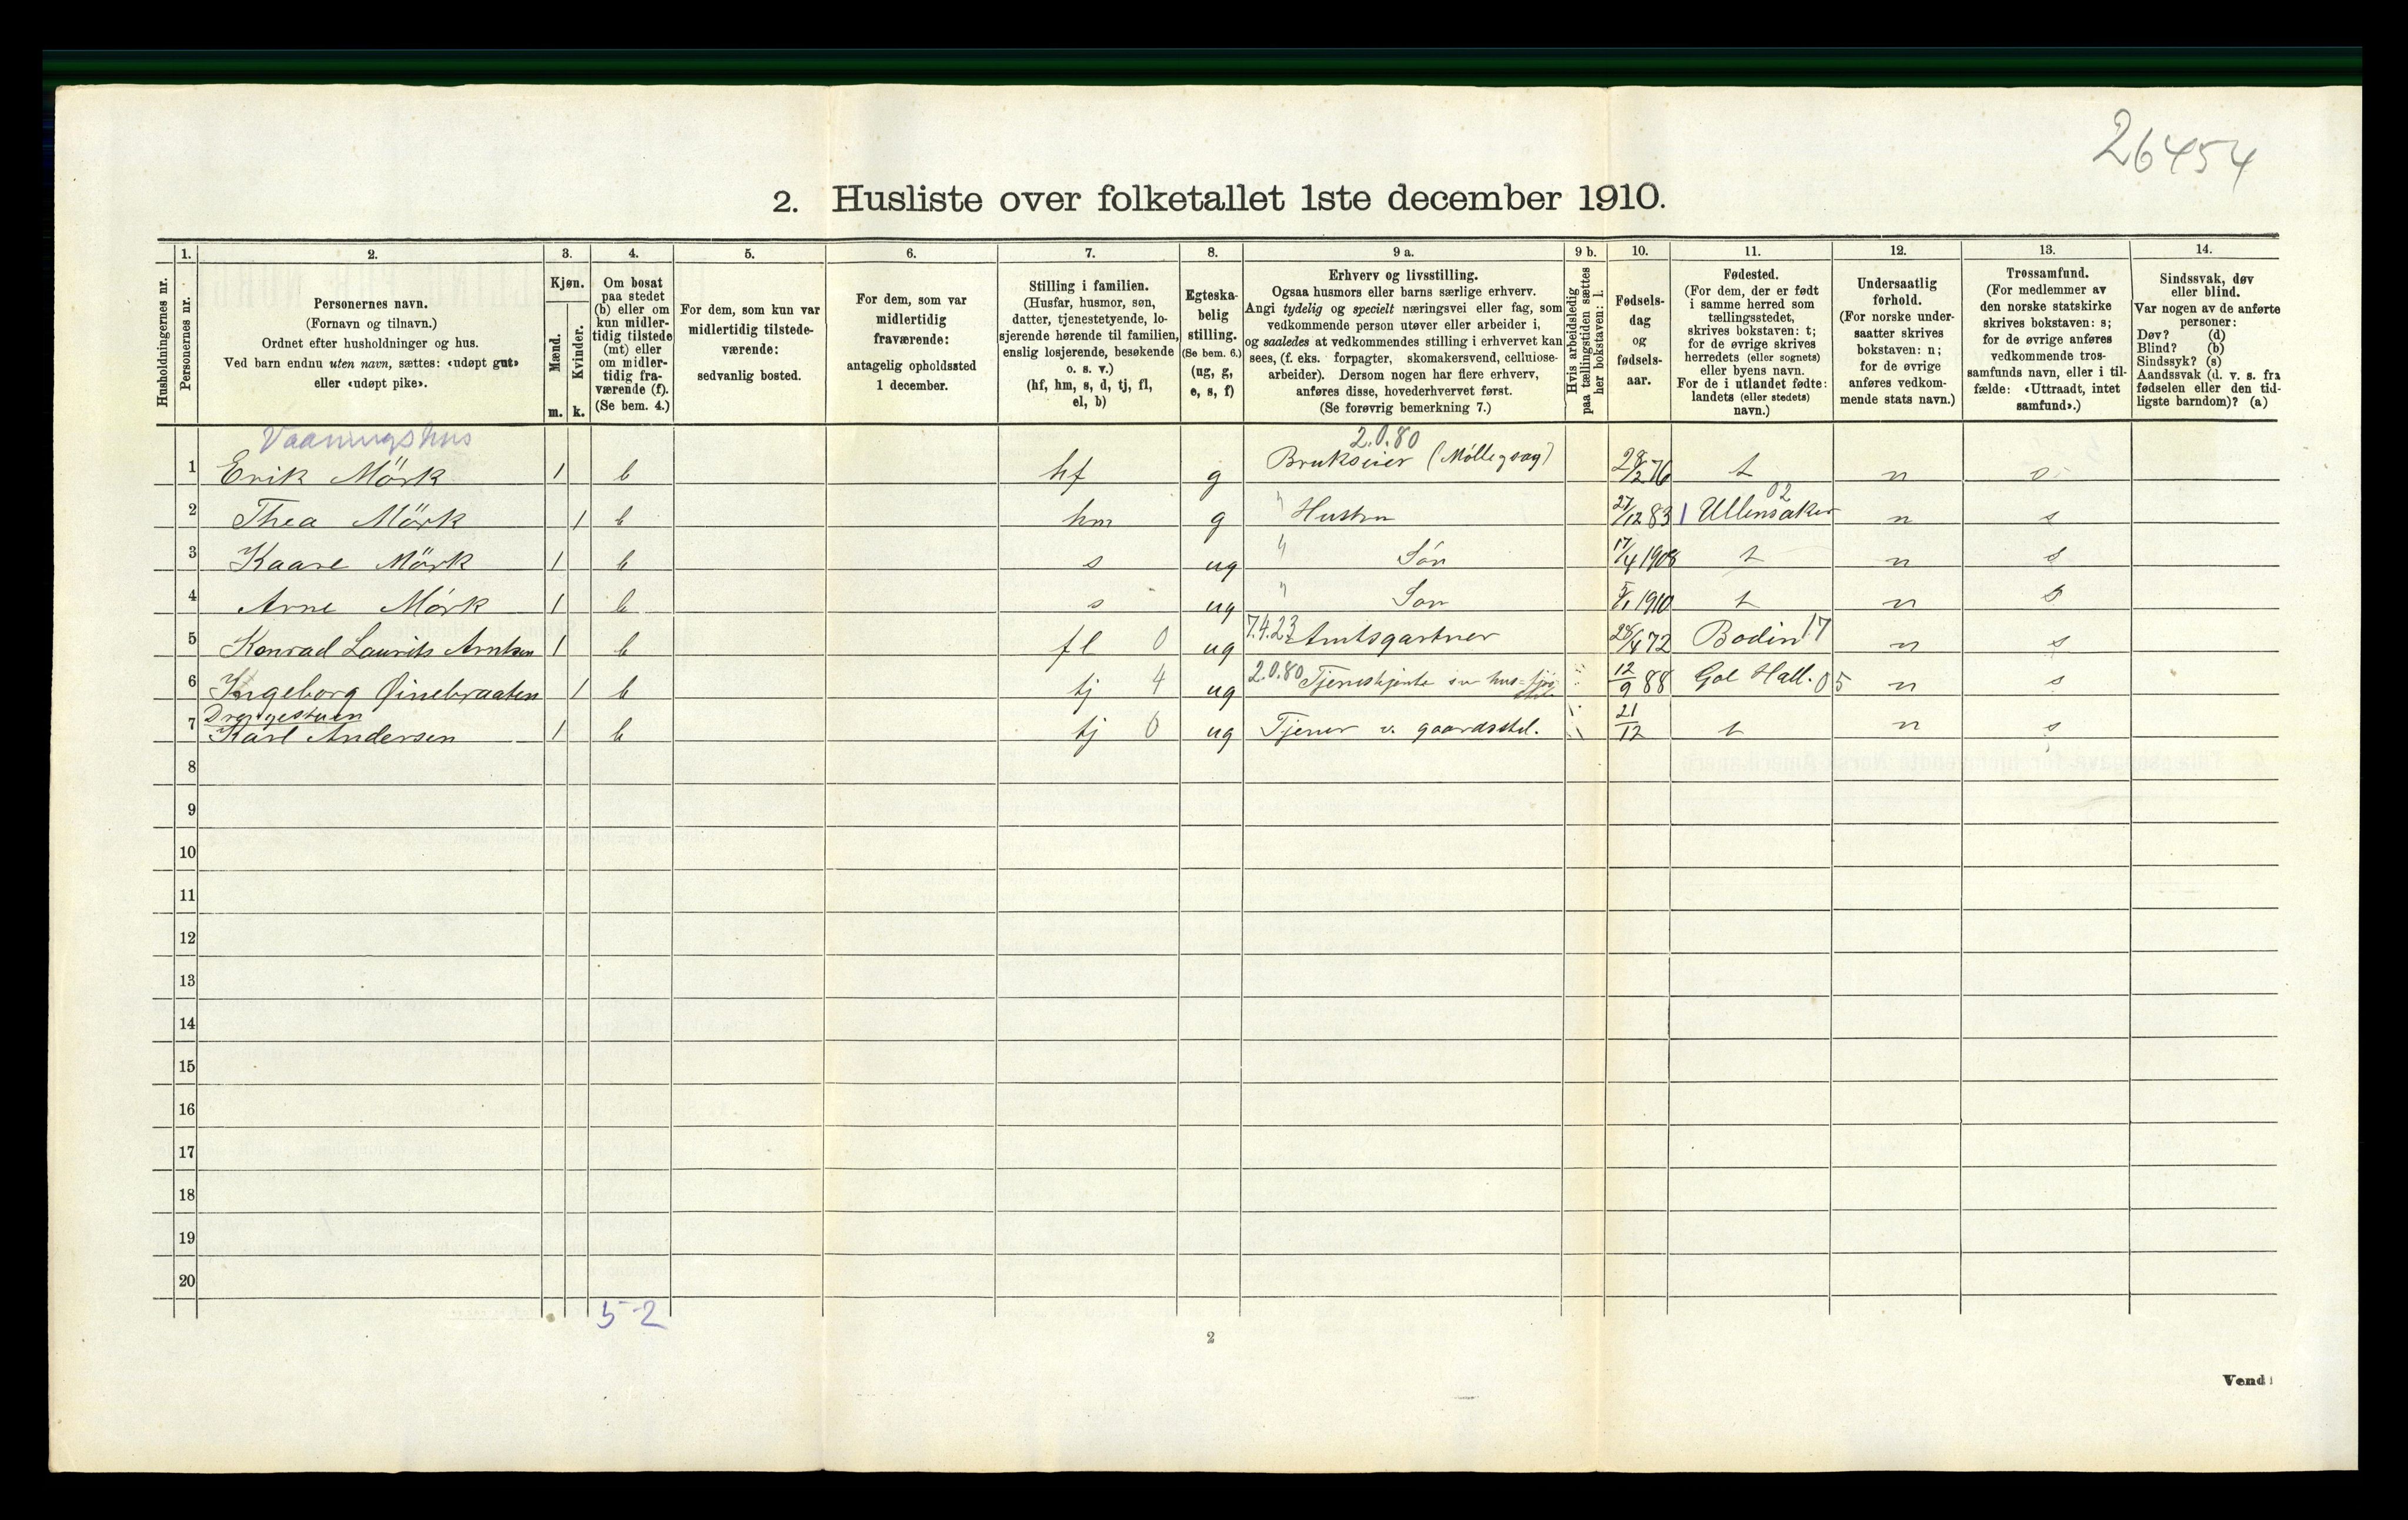 26454
2. Husliste over folketallet 1ste december 1910.
Husholdningernes nr.
1.
Personernes nr.
2.
Personernes navn.
(Fornavn og tilnavn.)
Ordnet efter husholdninger og hus.
Ved barn endnu uten navn, sættes: «udøpt gut»
eller «udøpt pike».
3.
Kjøn.
Mænd.
Kvinder.
m. k.
4.
Om bosat
paa stedet
(b) eller om
kun midler-
tidig tilstede
(mt) eller
om midler-
tidig fra-
værende (f).
(Se bem. 4.)
5.
For dem, som kun var
midlertidig tilstede-
værende:
sedvanlig bosted.
6.
For dem, som var
midlertidig
fraværende:
antagelig opholdssted
1 december.
7.
Stilling i familien.
(Husfar, husmor, søn,
datter, tjenestetyende, lo-
sjerende hørende til familien,
enslig losjerende, besøkende
o. s. v.)
(hf, hm, s, d, tj, fl,
el, b)
8.
Egteska-
belig
stilling.
(Se bem. 6.)
(ug, g,
e, s, f)
9 a.
Erhverv og livsstilling.
Ogsaa husmors eller barns særlige erhverv.
Angi tydelig og specielt næringsvei eller fag, som
vedkommende person utøver eller arbeider i,
og saaledes at vedkommendes stilling i erhvervet kan
sees, (f. eks. forpagter, skomakersvend, cellulose-
arbeider). Dersom nogen har flere erhverv,
anføres disse, hovederhvervet først.
(Se forøvrig bemerkning 7.)
9 b.
Hvis arbeidsledig
paa tællingstiden sættes
her bokstaven: l.
10.
Fødsels-
dag
og
fødsels-
aar.
11.
Fødested.
(For dem, der er født
i samme herred som
tællingsstedet,
skrives bokstaven: t;
for de øvrige skrives
herredets (eller sognets)
eller byens navn.
For de i utlandet fødte:
landets (eller stedets)
navn.)
12.
Undersaatlig
forhold.
(For norske under-
saatter skrives
bokstaven: n;
for de øvrige
anføres vedkom-
mende stats navn.)
13.
Trossamfund.
(For medlemmer av
den norske statskirke
skrives bokstaven: s;
for de øvrige anføres
vedkommende tros-
samfunds navn, eller i til-
fælde: «Uttraadt, intet
samfund».)
14.
Sindssvak, døv
eller blind.
Var nogen av de anførte
personer:
Døv? (d)
Blind? (b)
Sindssyk? (s)
Aandssvak (d. v. s. fra
fødselen eller den tid-
ligste barndom)? (a)
Vaaningshus
2.0.80
1 Erik Mörk 1 b hf g Brukseier (Mölle g sag) 28/2 76 t n
02
2 Thea Mörk 1 b hm g " Hustru 27/12 83 1 Ullensaker n s
3 Kaare Mörk 1 b s ug " Sön 17/4 1908 t n s
4 Arne Mörk 1 b s ug " Søn 5/1 1910 t n s
5 Konrad Laurits Arntsen 1 b fl 0 ug 7.4.23 Amtsgartner 28/4 72 Bodin 17 n s
6 Ingeborg Øinebraaten 1 b tj 4 ug 2.0.80 Tjenestejente hus- 12/9 88 Gol Hall. 05 n s
Drengestuen
7 Karl Andersen 1 b tj 0 ug Tjener v. gaardsstel. 21/12 t n s
8
9
10
11
12
13
14
15
16
17
18
19
20
5-2
2
Vend!